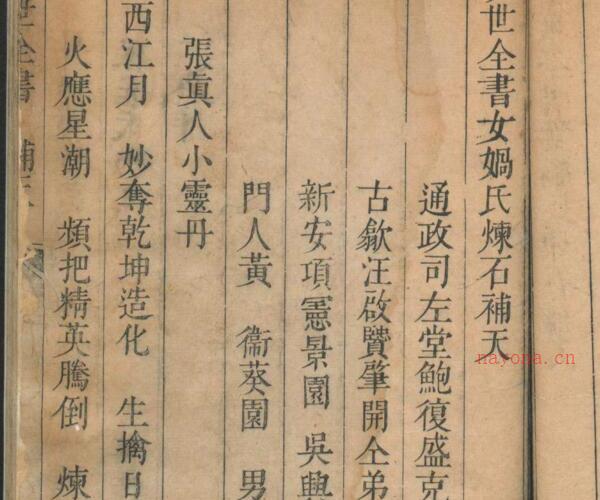 世全書女媧氏煉石補天
通政司左堂鮑復盛克
古歙汪啟贒肇開仝弟
新安項憲景園 吳興
門人黃 衞葵園 男
張眞人小靈丹
西江月 妙奪乾坤造化 生擒日
火應星潮 頻把精英騰倒 煉
世全書
nayona.cn